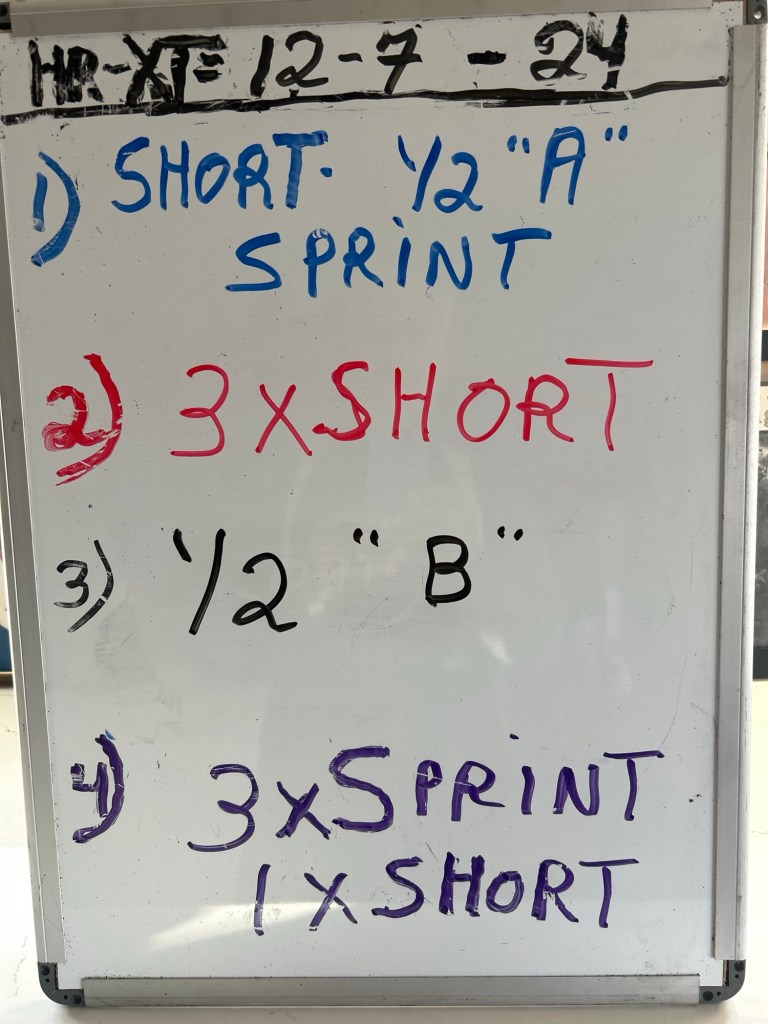 HR-XT= 12-7 - 24
1) SHORT. 1/2 "A"
SPRINT
2) 3 X SHORT
3) 1/2 "B"
4) 3 X SPRINT
1 X SHORT